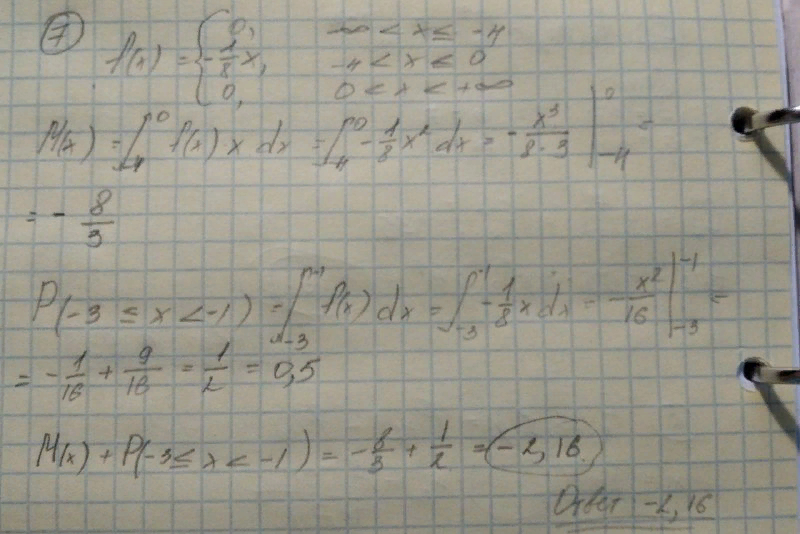 7 f(x) = { 0, -∞ < x ≤ -4
-1/8 x, -4 < x ≤ 0
0, 0 < x < +∞
M(x) = ∫_{-4}^{0} f(x) x dx = ∫_{-4}^{0} -1/8 x² dx = - x³/(8·3) |_{-4}^{0} =
= - 8/3
P(-3 ≤ x < -1) = ∫_{-3}^{-1} f(x) dx = ∫_{-3}^{-1} -1/8 x dx = - x²/16 |_{-3}^{-1} =
= - 1/16 + 9/16 = 1/2 = 0,5
M(x) + P(-3 ≤ x < -1) = - 8/3 + 1/2 = -2,16
Ответ -2,16